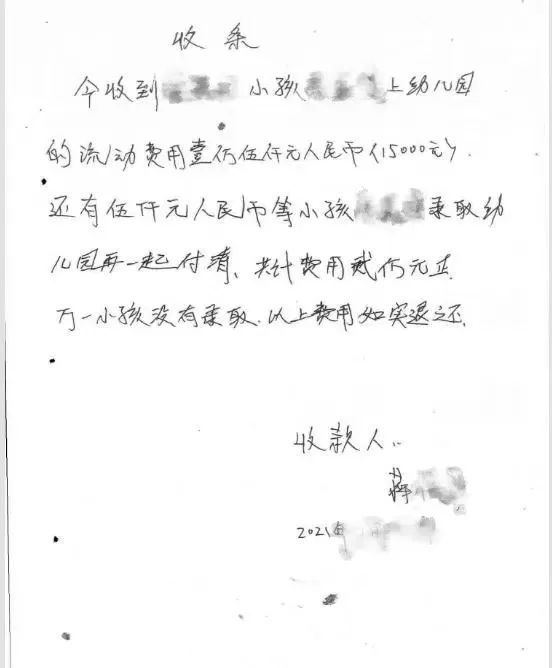 收条
今收到 小孩 上幼儿园
的流动费用壹仟伍仟元人民币(15000元).
还有伍仟元人民币等小孩 录取幼
儿园再一起付清、共计费用贰仟元正.
万一小孩没有录取.以上费用如实退还.
收款人:
蒋
2021年